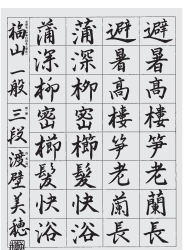 避暑高樓笋老蘭長
避暑高樓笋老蘭長
蒲深柳密櫛髮快浴
蒲深柳密櫛髮快浴
福山 一般 三段 渡壁美穂